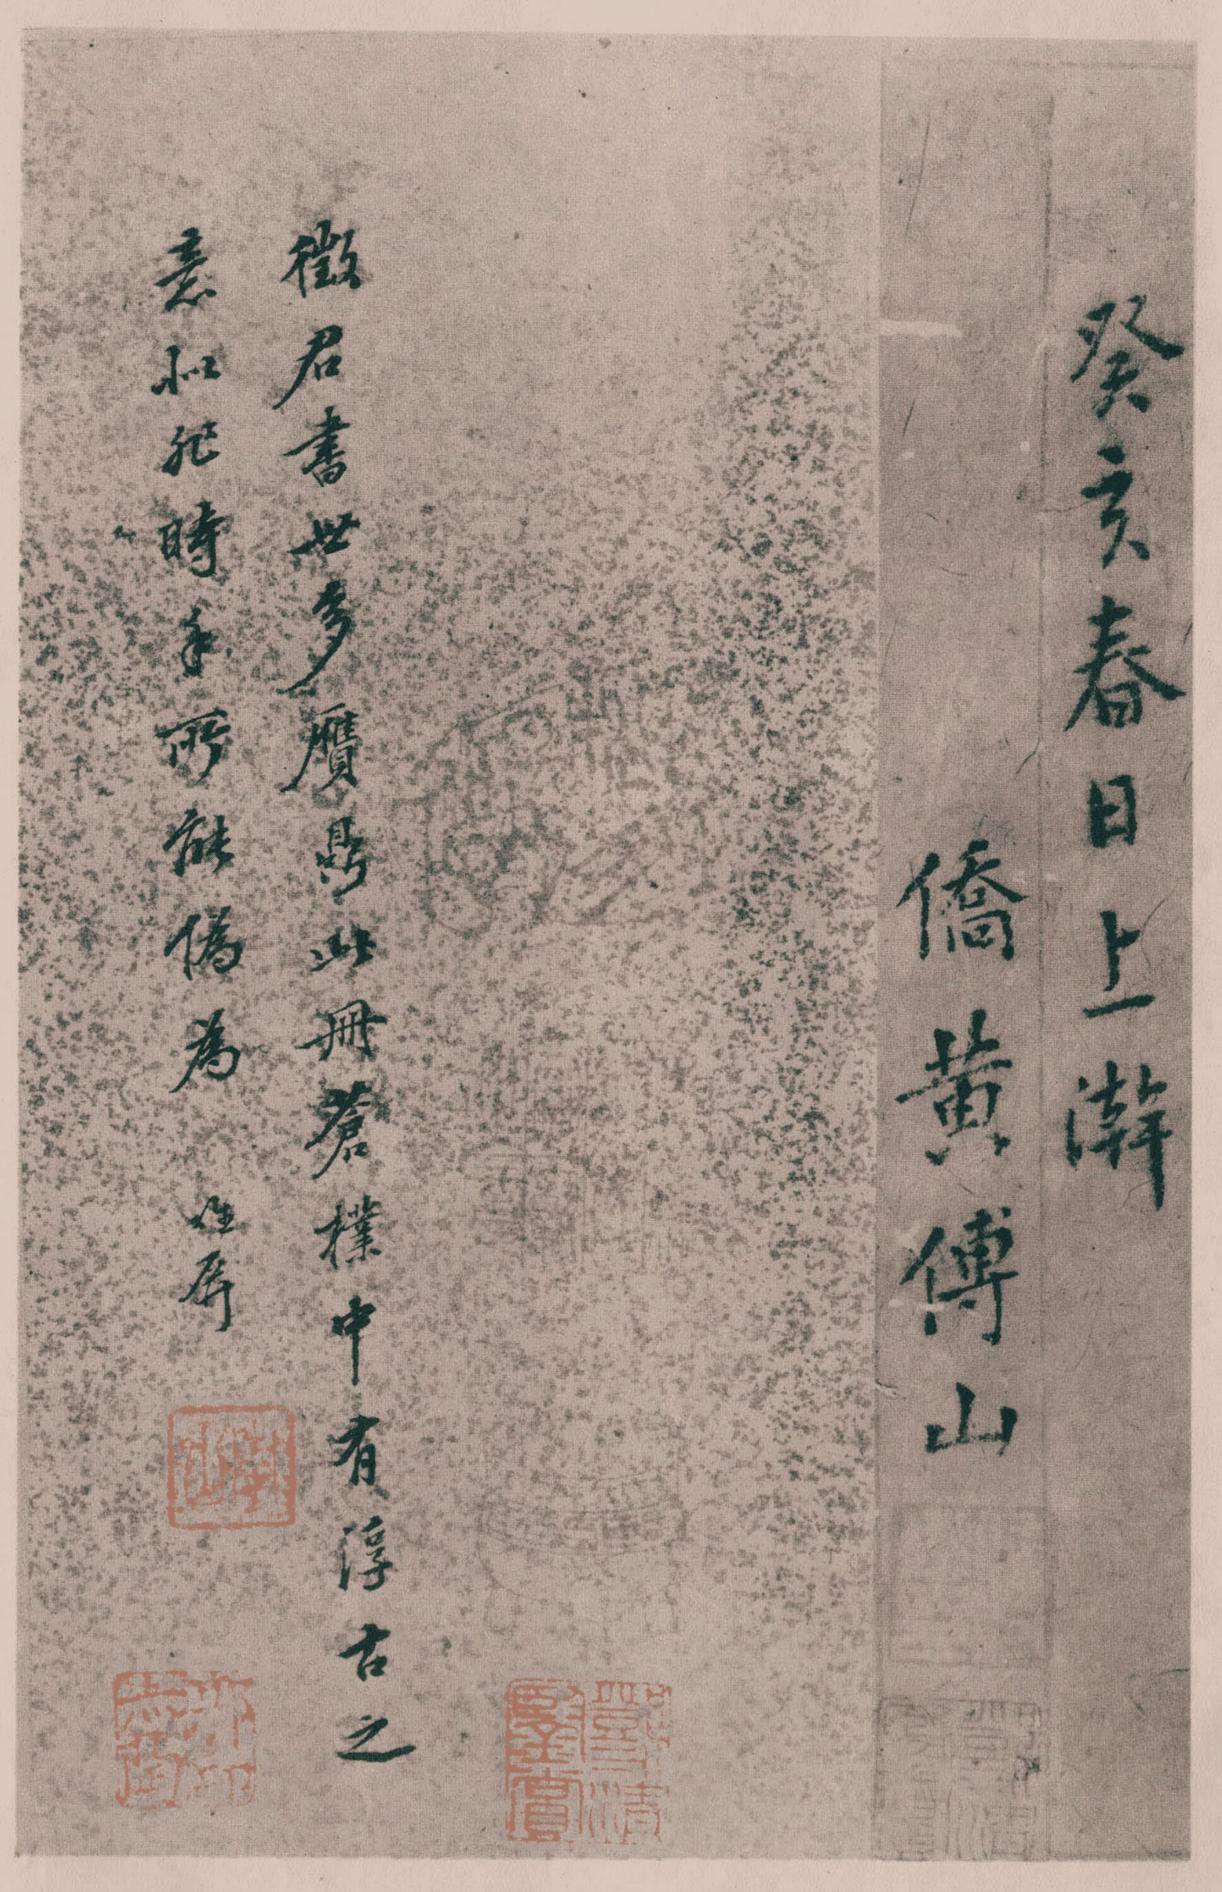 癸亥春日上澣
僑黃傅山
徵君書世多贋鼎此冊蒼樸中有淳古之
意似非時手所能偽為
屏